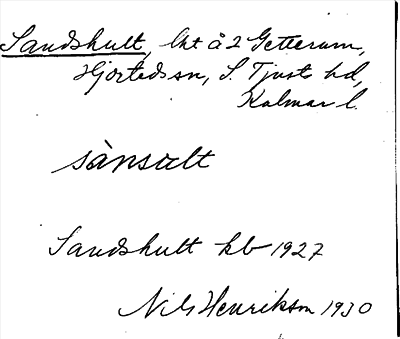 Sandshult, lht å 2 Getterum,
Hjorteds sn, S. Tjust hd,
Kalmar l.
sànsult
Sandshult kb 1927
Nils Henrikson 1930